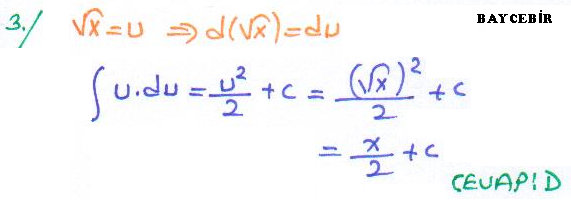 3./ √x = u ⇒ d(√x) = du
BAYCEBİR
∫ u.du = u²/2 + c = (√x)²/2 + c
= x/2 + c
CEVAP: D